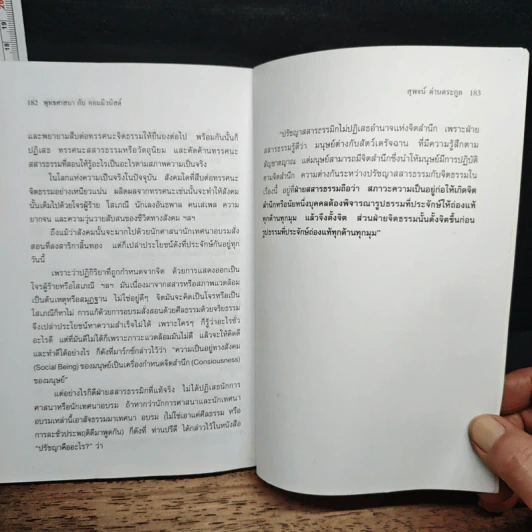 182 พุทธศาสนา กับ คอมมิวนิสต์
และพยายามสืบต่อทรรศนะจิตธรรมให้ยืนยงต่อไป พร้อมกันนั้นก็
ปฏิเสธ ทรรศนะสสารธรรมหรือวัตถุนิยม และคัดค้านทรรศนะ
สสารธรรมที่สอนให้รู้อะไรเป็นอะไรตามสภาพความเป็นจริง
ในโลกแห่งความเป็นจริงในปัจจุบัน สังคมใดที่สืบต่อทรรศนะ
จิตธรรมอย่างเหนียวแน่น ผลิตผลจากทรรศนะเช่นนั้นจะทำให้สังคม
นั้นเต็มไปด้วยโจรผู้ร้าย โสเภณี นักเลงอันธพาล คนเสเพล ความ
ยากจน และความวุ่นวายสับสนของชีวิตทางสังคม ฯลฯ
ถึงแม้ว่าสังคมนั้นจะมากไปด้วยนักศาสนานักเทศนาอบรมสั่ง
สอนที่ลงสาริกาลิ้นทอง แต่ก็เปล่าประโยชน์ดังที่ประจักษ์กันอยู่ทุก
วันนี้
เพราะว่าปฏิกิริยาที่ถูกกำหนดจากจิต ด้วยการแสดงออกเป็น
โจรผู้ร้ายหรือโสเภณี ฯลฯ มันเนื่องมาจากสสารหรือสภาพแวดล้อม
เป็นต้นเหตุหรือสมุฏฐาน ไม่ใช่อยู่ดีๆ จิตมันจะคิดเป็นโจรหรือเป็น
โสเภณีก็หาไม่ การแก้ด้วยการอบรมสั่งสอนด้วยศีลธรรมด้วยจริยธรรม
จึงเปล่าประโยชน์หาความสำเร็จไม่ได้ เพราะใครๆ ก็รู้ว่าอะไรชั่ว
อะไรดี แต่ที่มันดีไม่ได้ก็เพราะภาวะแวดล้อมมันไม่ดี แล้วจะให้คิดดี
และทำดีได้อย่างไร ก็ดังที่มาร์กซ์กล่าวไว้ว่า "ความเป็นอยู่ทางสังคม
(Social Being) ของมนุษย์เป็นเครื่องกำหนดจิตสำนึก (Consiousness)
ของมนุษย์"
แต่อย่างไรก็ดีฝ่ายสสารธรรมิกที่แท้จริง ไม่ได้ปฏิเสธนักการ
ศาสนาหรือนักเทศนาอบรม ถ้าหากว่านักการศาสนาและนักเทศนา
อบรมเหล่านี้เอาสัจธรรมมาเทศนา อบรม (ไม่ใช่เอาแค่ศีลธรรม หรือ
การละชั่วประพฤติดีมาพูดกัน) ก็ดังที่ ท่านปรีดี ได้กล่าวไว้ในหนังสือ
"ปรัชญาคืออะไร?" ว่า
สุพจน์ ด่านตระกูล 183
"ปรัชญาสสารธรรมิกไม่ปฏิเสธอำนาจแห่งจิตสำนึก เพราะฝ่าย
สสารธรรมรู้ดีว่า มนุษย์ต่างกับสัตว์เดรัจฉาน ที่มีความรู้สึกตาม
สัญชาตญาณ แต่มนุษย์สามารถมีจิตสำนึกซึ่งนำให้มนุษย์มีการปฏิบัติ
ตามจิตสำนึก ความต่างกันระหว่างปรัชญาสสารธรรมกับจิตธรรมใน
เรื่องนี้ อยู่ที่ฝ่ายสสารธรรมถือว่า สภาวะความเป็นอยู่ก่อให้เกิดจิต
สำนึกหรือนัยหนึ่งบุคคลต้องพิจารณารูปธรรมที่ประจักษ์ให้ถ่องแท้
ทุกด้านทุกมุม แล้วจึงตั้งจิต ส่วนฝ่ายจิตธรรมนั้นตั้งจิตขึ้นก่อน
รูปธรรมที่ประจักษ์ถ่องแท้ทุกด้านทุกมุม"
18
19